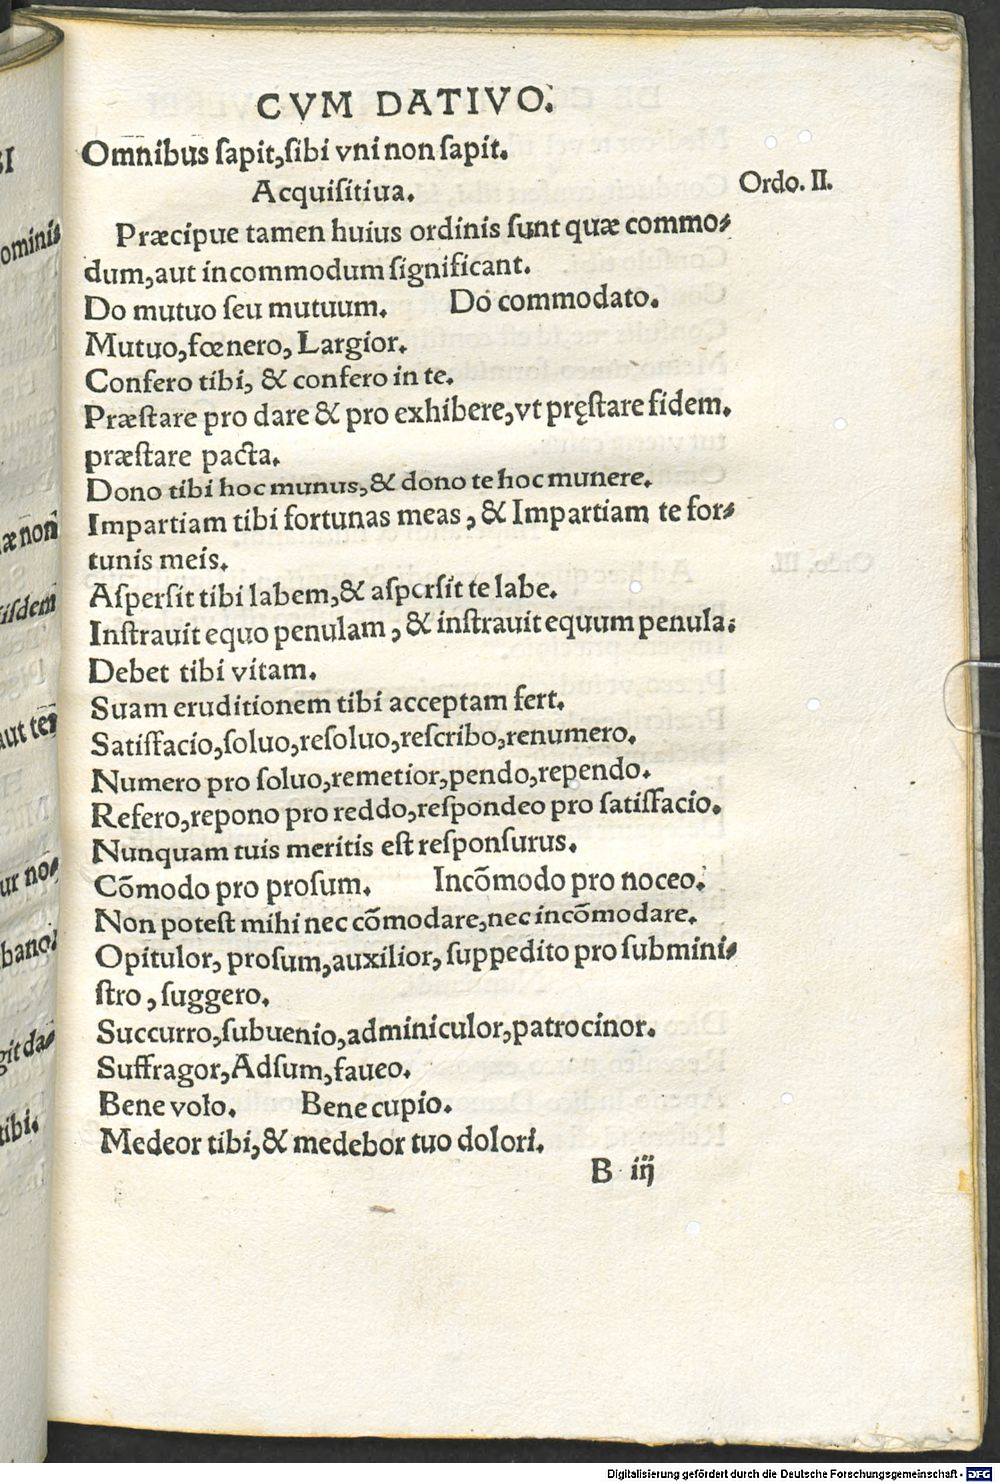 CVM DATIVO.
Omnibus sapit,sibi vni non sapit.
Acquisitiua.
Ordo. II.
Præcipue tamen huius ordinis sunt quæ commo-
dum,aut incommodum significant.
Do mutuo seu mutuum. Do commodato.
Mutuo,fœnero, Largior.
Confero tibi, & confero in te.
Præstare pro dare & pro exhibere,vt pręstare fidem.
præstare pacta.
Dono tibi hoc munus,& dono te hoc munere.
Impartiam tibi fortunas meas, & Impartiam te for-
tunis meis.
Aspersit tibi labem,& aspersit te labe.
Instrauit equo penulam, & instrauit equum penula:
Debet tibi vitam.
Suam eruditionem tibi acceptam fert.
Satisfacio,soluo,resoluo,rescribo,renumero.
Numero pro soluo,remetior,pendo,rependo.
Refero,repono pro reddo,respondeo pro satisfacio.
Nunquam tuis meritis est responsurus.
Cõmodo pro prosum. Incõmodo pro noceo.
Non potest mihi nec cõmodare,nec incõmodare.
Opitulor, prosum,auxilior, suppedito pro submini-
stro, suggero.
Succurro,subuenio,adminiculor,patrocinor.
Suffragor,Adsum,faueo.
Bene volo. Bene cupio.
Medeor tibi,& medebor tuo dolori.
B iij
ominis
æ non
iisdem
aut ter
ur no-
bano:
git da-
tibi.
Digitalisierung gefördert durch die Deutsche Forschungsgemeinschaft - DFG